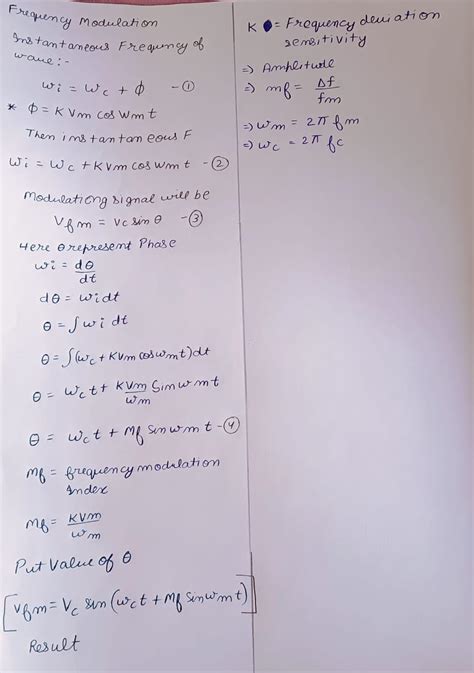 Frequency Modulation
Instantaneous Frequency of
wave :-
wi = wc + ϕ - ①
* ϕ = K Vm cos wm t
Then instantaneous F
wi = wc + KVm cos wm t - ②
Modulationg signal will be
Vfm = Vc sin θ - ③
Here θ represent Phase
wi = dθ/dt
dθ = widt
θ = ∫wi dt
θ = ∫(wc + KVm cos wm t) dt
θ = wc t + KVm/wm Sin wm t
θ = wc t + Mf sin wm t - ④
Mf = frequency modulation
Index
Mf = KVm/wm
Put Value of θ
[Vfm = Vc sin (wc t + Mf sin wm t)]
Result
K = Frequency deviation
sensitivity
⇒ Amplitude
⇒ mf = Δf/fm
⇒ wm = 2π fm
⇒ wc = 2π fc